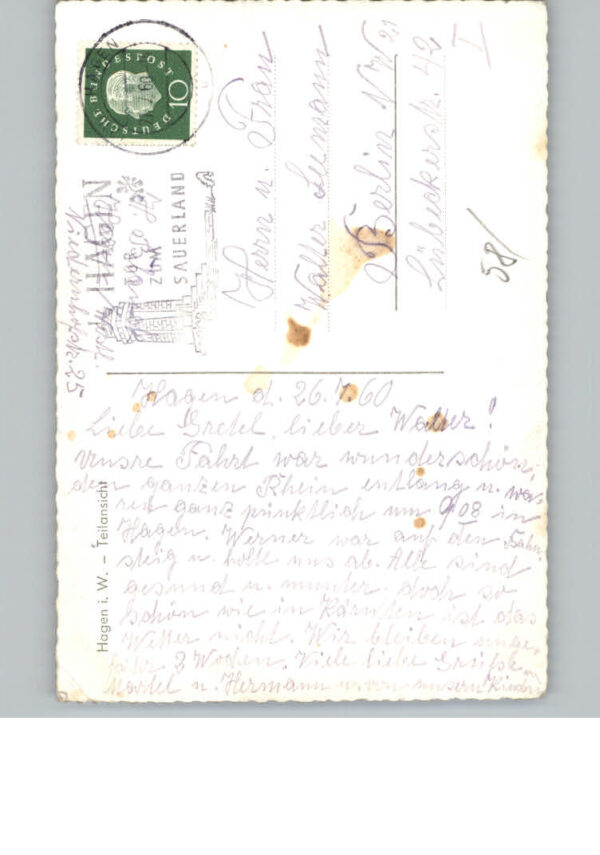 DEUTSCHE BUNDESPOST
10
HAGEN
DAS TOR
ZUM
SAUERLAND
Hagen
Herrn u. Frau
Walter Leemann
Berlin NW 21
Lübeckerstr. 42
I
58/
Hagen d. 26.7.60
Liebe Gretel, lieber Walter!
Unsre Fahrt war wunderschön,
den ganzen Rhein entlang u. wa-
ren ganz pünktlich um 9 08 in
Hagen. Werner war auf den Bahn-
steig u. holte uns ab. Alle sind
gesund u. munter. doch so
schön wie in Kärnten ist das
Wetter nicht. Wir bleiben unge-
fähr 3 Wochen. Viele liebe Grüße
Martel u. Hermann u. von unsern Kindern
Hagen i. W. – Teilansicht